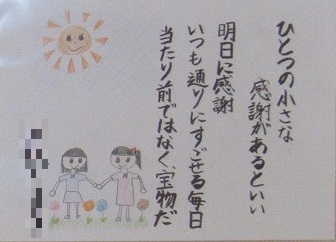 ひとつの小さな
感謝があるといい
明日に感謝
いつも通りにすごせる毎日
当たり前ではなく、宝物だ